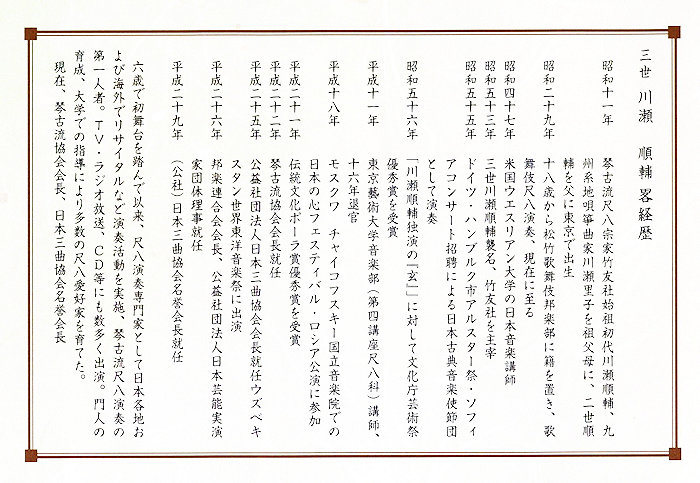 三世 川瀬 順輔 畧経歴
昭和十一年 琴古流尺八宗家竹友社始祖初代川瀬順輔、九
州系地唄箏曲家川瀬里子を祖父母に、二世順
輔を父に東京で出生
昭和二十九年 十八歳から松竹歌舞伎邦楽部に籍を置き、歌
舞伎尺八演奏、現在に至る
昭和四十七年 米国ウエスリアン大学の日本音楽講師
昭和五十三年 三世川瀬順輔襲名、竹友社を主宰
昭和五十五年 ドイツ・ハンブルク市アルスター祭・ソフィ
アコンサート招聘による日本古典音楽使節団
として演奏
昭和五十六年 「川瀬順輔独演の「玄」」に対して文化庁芸術祭
優秀賞を受賞
平成十一年 東京藝術大学音楽部(第四講座尺八科)講師、
十六年退官
平成十八年 モスクワ チャイコフスキー国立音楽院での
日本の心フェスティバル・ロシア公演に参加
平成二十一年 伝統文化ポーラ賞優秀賞を受賞
平成二十二年 琴古流協会会長就任
平成二十五年 公益社団法人日本三曲協会会長就任ウズベキ
スタン世界東洋音楽祭に出演
平成二十六年 邦楽連合会会長、公益社団法人日本芸能実演
家団体理事就任
平成二十九年 (公社)日本三曲協会名誉会長就任
六歳で初舞台を踏んで以来、尺八演奏専門家として日本各地お
よび海外でリサイタルなど演奏活動を実施、琴古流尺八演奏の
第一人者。TV・ラジオ放送、CD等にも数多く出演。門人の
育成、大学での指導により多数の尺八愛好家を育てた。
現在、琴古流協会会長、日本三曲協会名誉会長